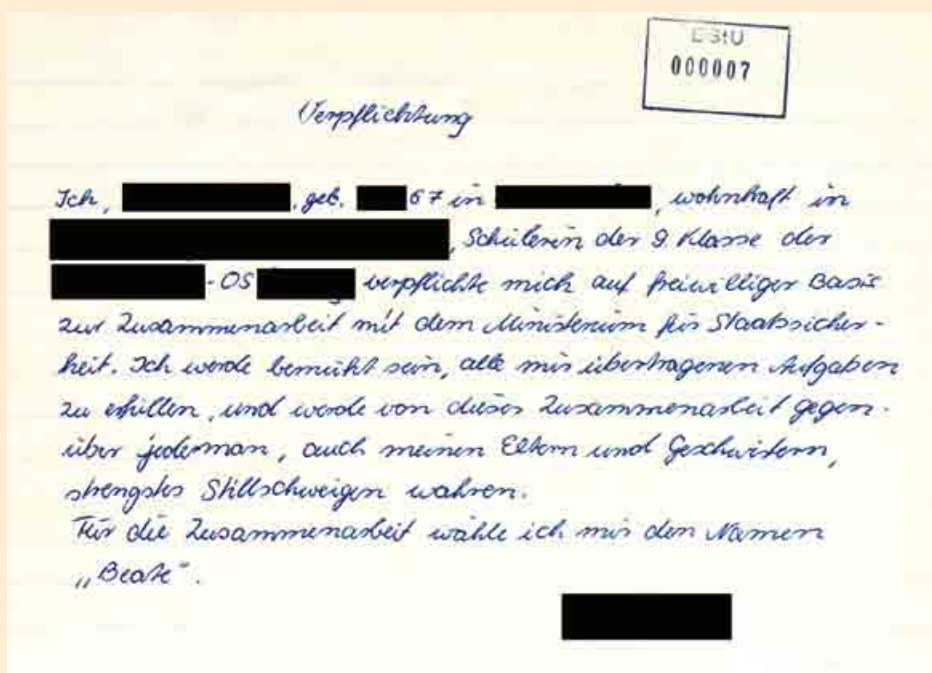 BStU
000007
Verpflichtung
Ich, , geb. 67 in , wohnhaft in
, Schülerin der 9. Klasse der
-OS verpflichte mich auf freiwilliger Basis
zur Zusammenarbeit mit dem Ministerium für Staatssicher-
heit. Ich werde bemüht sein, alle mir übertragenen Aufgaben
zu erfüllen, und werde von dieser Zusammenarbeit gegen-
über jederman, auch meinen Eltern und Geschwistern,
strengstes Stillschweigen wahren.
Für die Zusammenarbeit wähle ich mir den Namen
„Beate“.